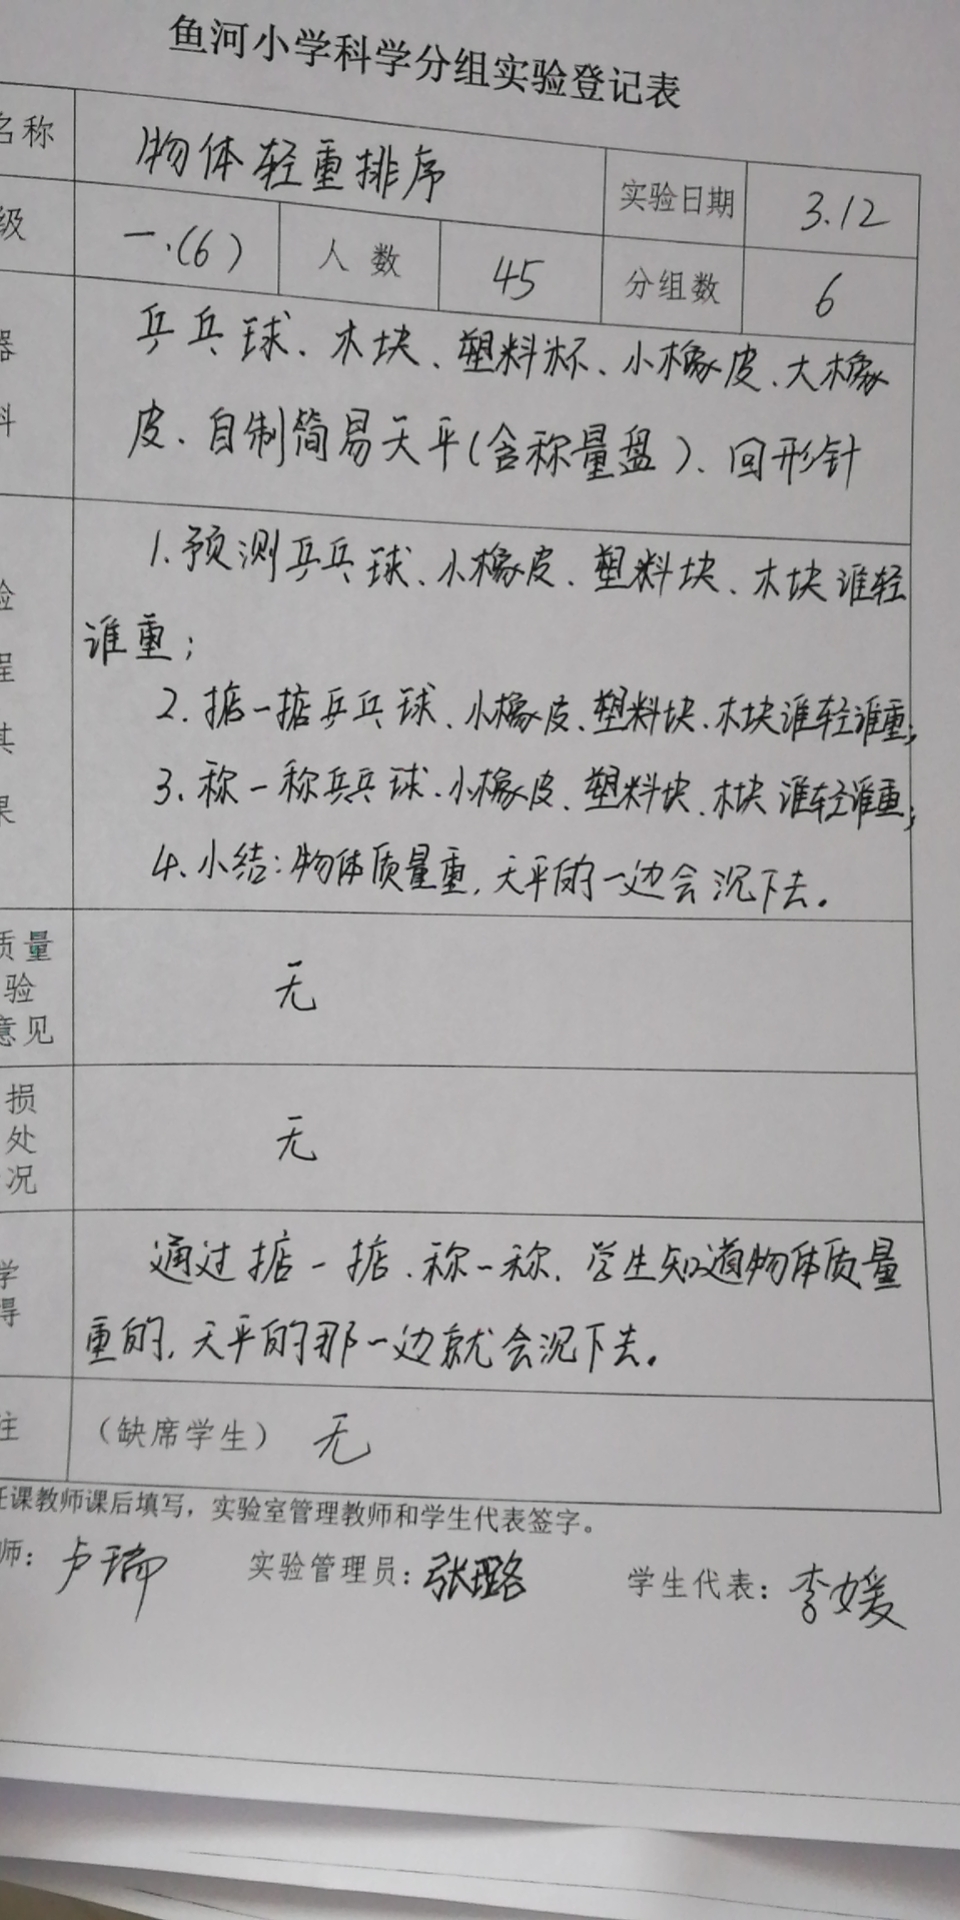 鱼河小学科学分组实验登记表
名称 物体轻重排序 实验日期 3.12
级 一.(6) 人数 45 分组数 6
器 乒乓球、木块、塑料杯、小橡皮、大橡
料 皮、自制简易天平(含称量盘)、回形针
1.预测乒乓球、小橡皮、塑料块、木块谁轻
验 谁重;
程 2.掂一掂乒乓球、小橡皮、塑料块、木块谁轻谁重;
其 3.称一称乒乓球、小橡皮、塑料块、木块谁轻谁重;
果 4.小结:物体质量重,天平的一边会沉下去。
质量
验 无
意见
损
处 无
况
学 通过掂一掂、称一称,学生知道物体质量
得 重的,天平的那一边就会沉下去。
注 (缺席学生) 无
任课教师课后填写,实验室管理教师和学生代表签字。
师: 卢瑞 实验管理员: 张璐 学生代表: 李媛